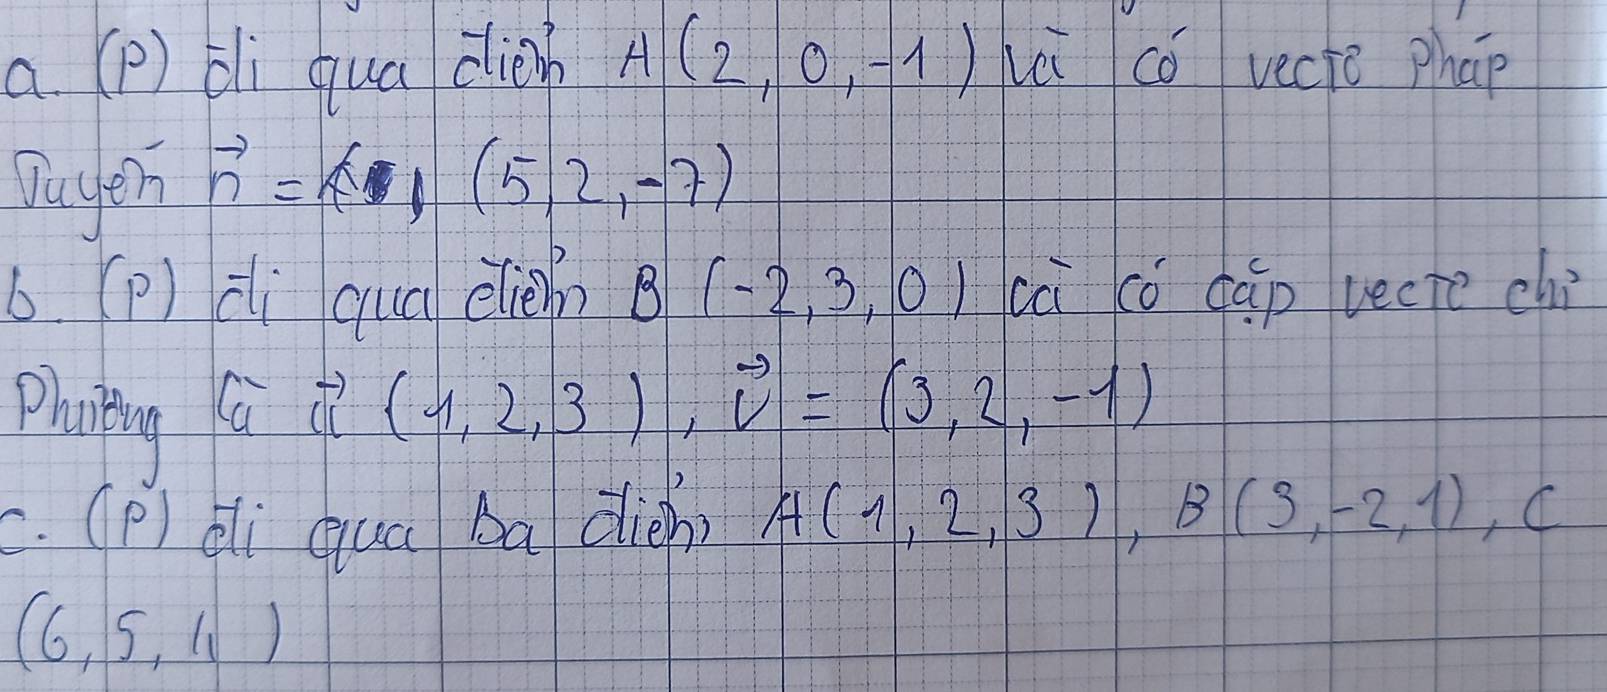 a. (P) đi qua điểm A (2, 0, -1) và có vectơ pháp
Tuyến n⃗ = (5, 2, -7)
b. (P) đi qua điểm B (-2, 3, 0) và có cặp vectơ chỉ
Phương là u⃗ (1, 2, 3), v⃗ = (3, 2, -1)
c. (P) đi qua ba điểm A(1, 2, 3), B(3, -2, 1), C
(6, 5,